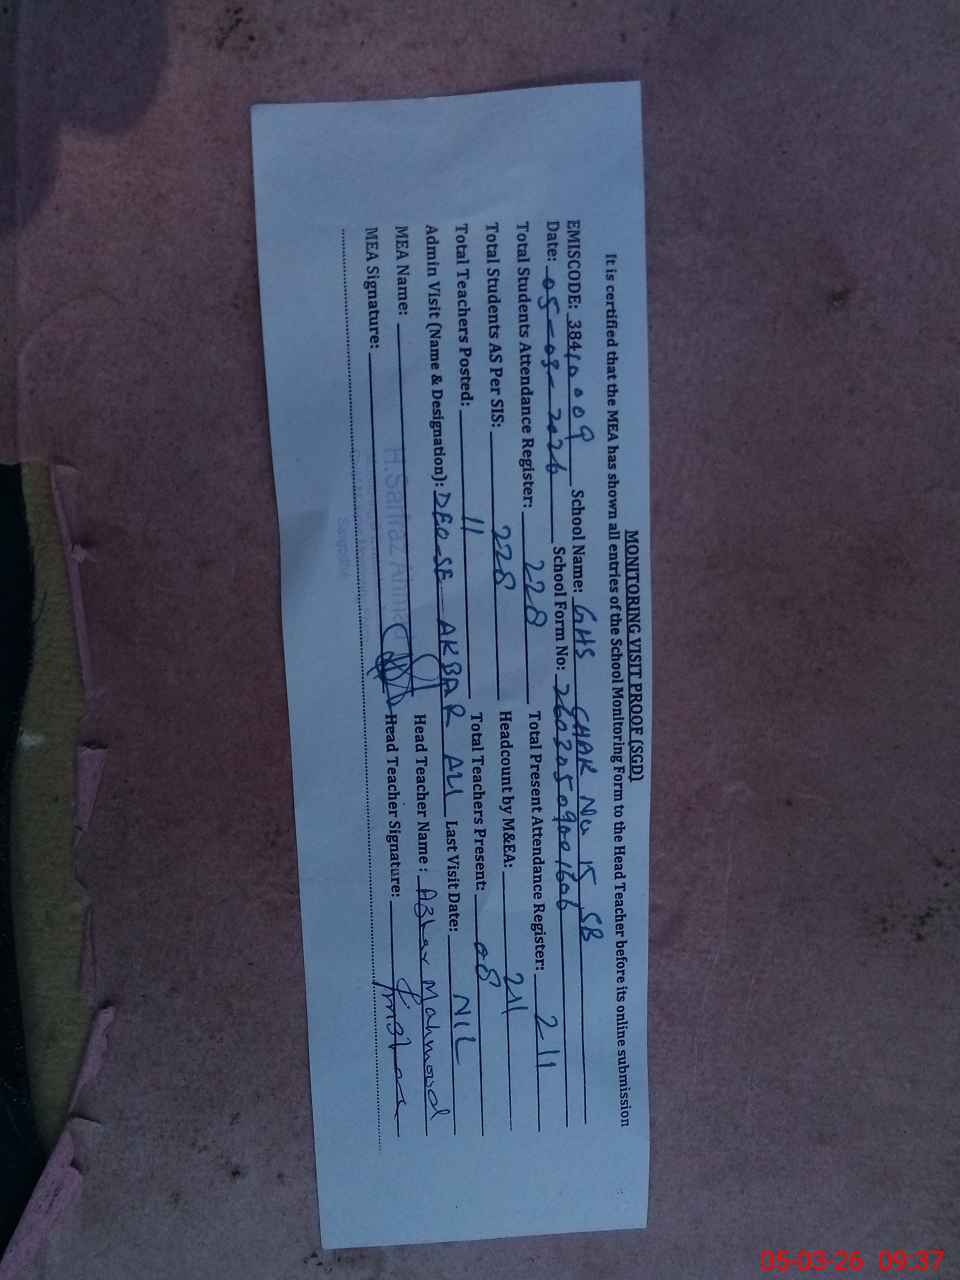 MONITORING VISIT PROOF (SGD)
It is certified that the MEA has shown all entries of the School Monitoring Form to the Head Teacher before its online submission
EMISCODE: 38410009 School Name: GHS CHAK No 15 SB
Date: 05-03-2026 School Form No: 26030509001606
Total Students Attendance Register: 228 Total Present Attendance Register: 211
Total Students AS Per SIS: 228 Headcount by M&EA: 211
Total Teachers Posted: 11 Total Teachers Present: 08
Admin Visit (Name & Designation): DEO-SE AKBAR ALI Last Visit Date: NIL
MEA Name: H.Sarfraz Ahmad Head Teacher Name: Azhar Mahmood
MEA Signature: Head Teacher Signature:
Sargodha
05-03-26 09:37